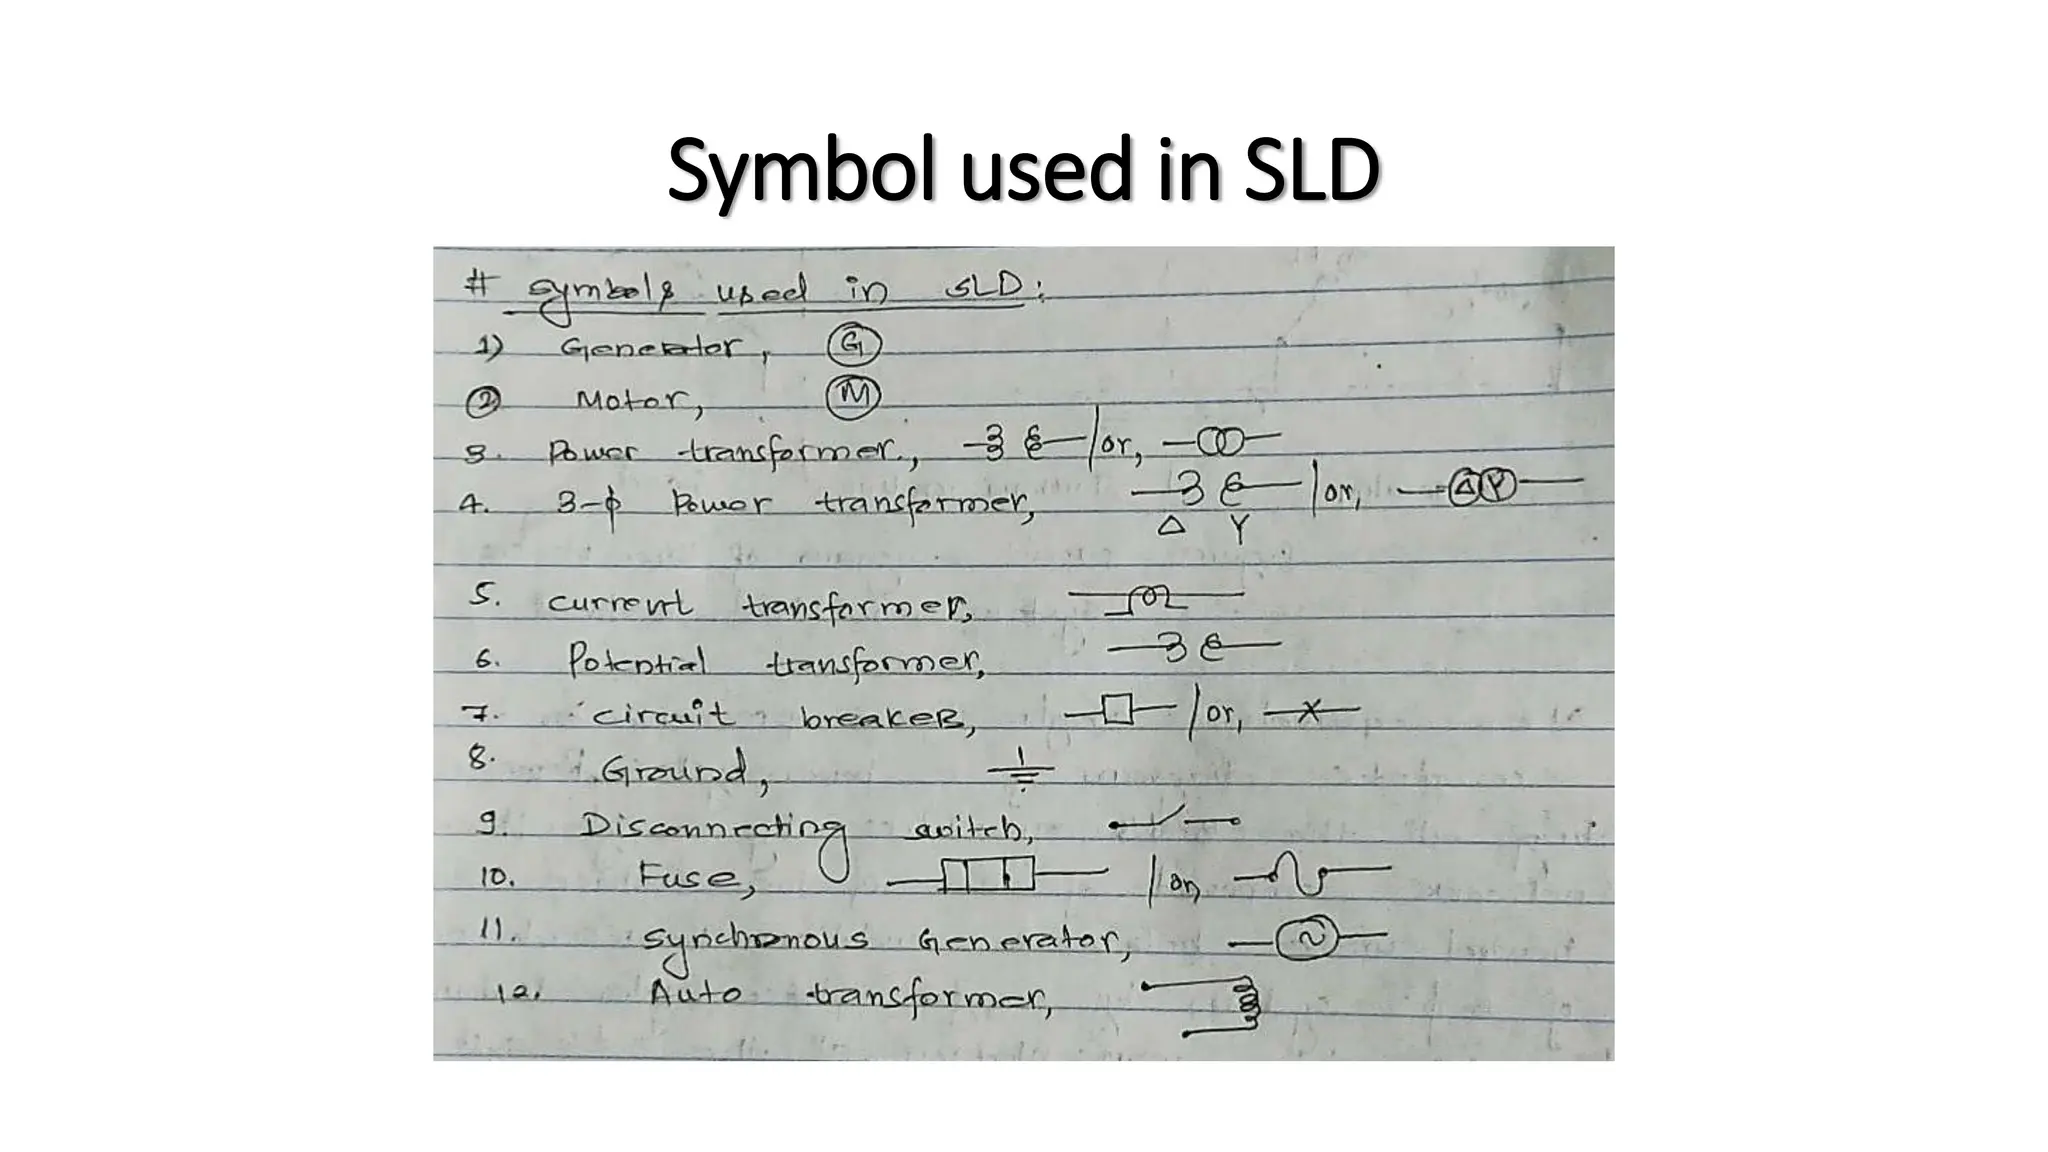 Symbol used in SLD
# Symbols used in SLD:
1) Generator, G
2 Motor, M
3. Power transformer, / or,
4. 3-ϕ Power transformer, / or, Δ Y
Δ Y
5. current transformer,
6. Potential transformer,
7. circuit breaker, / or,
8. Ground,
9. Disconnecting switch,
10. Fuse, / or
11. Synchronous Generator, ~
12. Auto transformer,